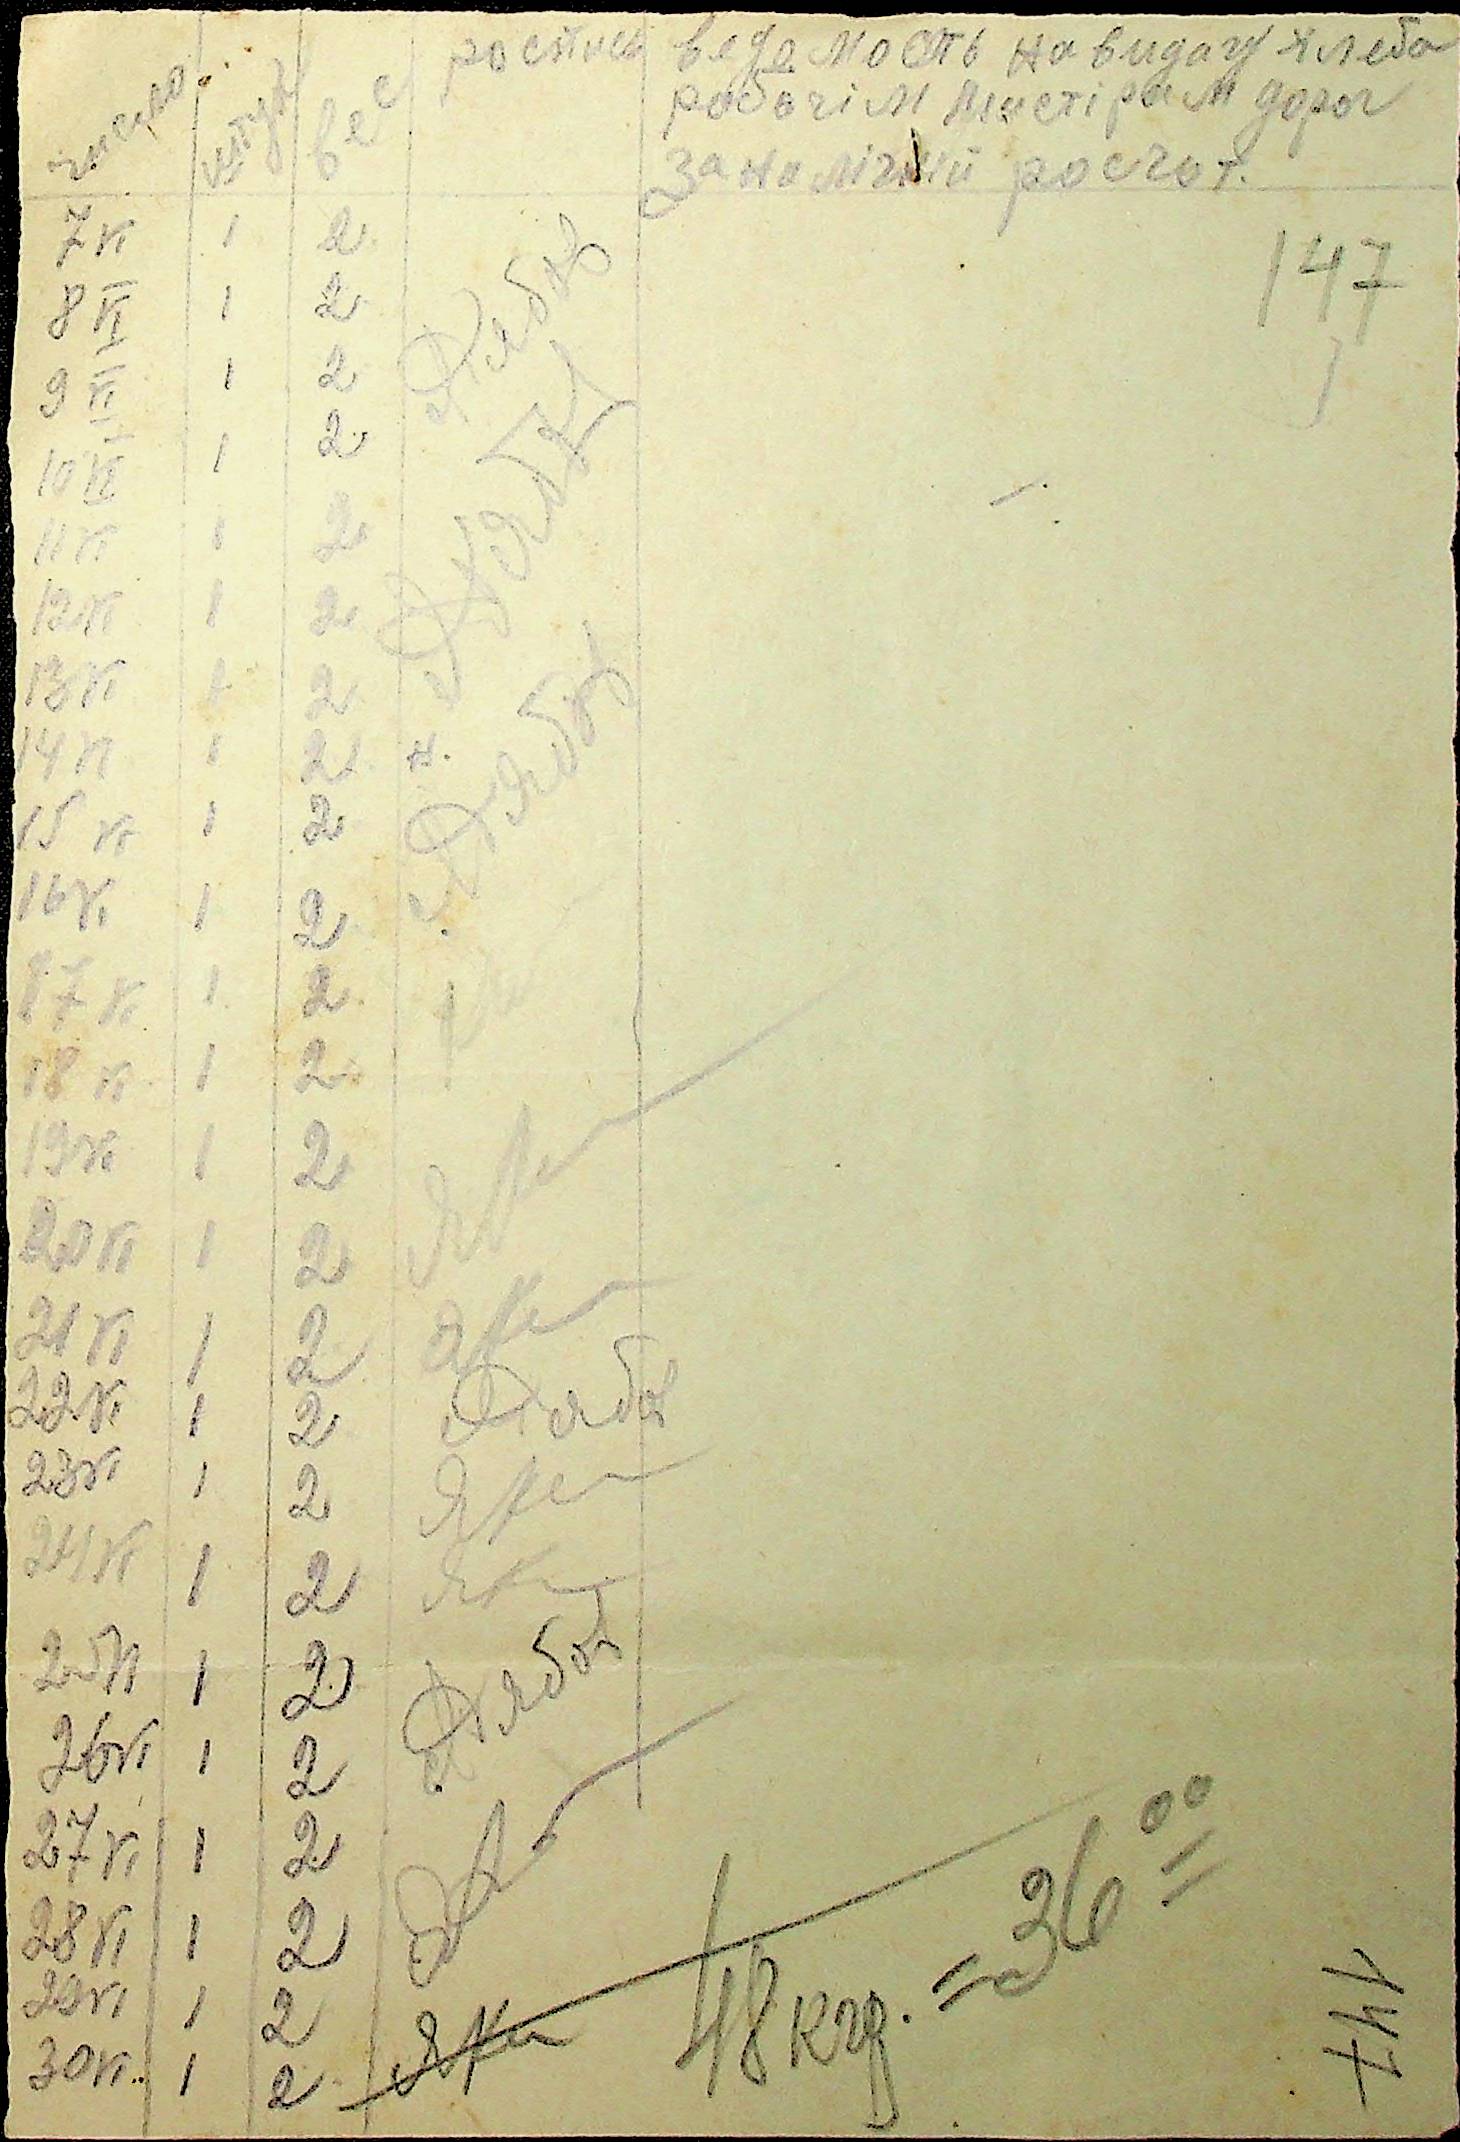 число штук вес роспись ведомость на видачу хлеба
рабочім мастірам дорог
за налічний росчот.
147
7 VI 1 2
8 VI 1 2 Рябов
9 VI 1 2
10 VI 1 2
11 VI 1 2
12 VI 1 2
13 VI 1 2
14 VI 1 2 н.
15 VI 1 2 Рябов
16 VI 1 2
17 VI 1 2
18 VI 1 2
19 VI 1 2
20 VI 1 2
21 VI 1 2
22 VI 1 2 Рябов
23 VI 1 2
24 VI 1 2
25 VI 1 2
26 VI 1 2 Рябов
27 VI 1 2
28 VI 1 2
29 VI 1 2
30 VI 1 2
48 кгр. = 36 00
147